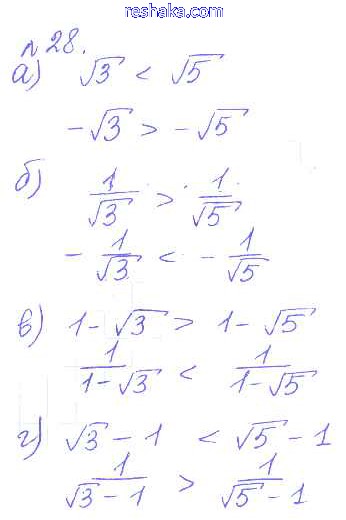 reshaka.com
№28.
а) √3 < √5
-√3 > -√5
б) 1/√3 > 1/√5
-1/√3 < -1/√5
в) 1-√3 > 1-√5
1/(1-√3) < 1/(1-√5)
г) √3-1 < √5-1
1/(√3-1) > 1/(√5-1)